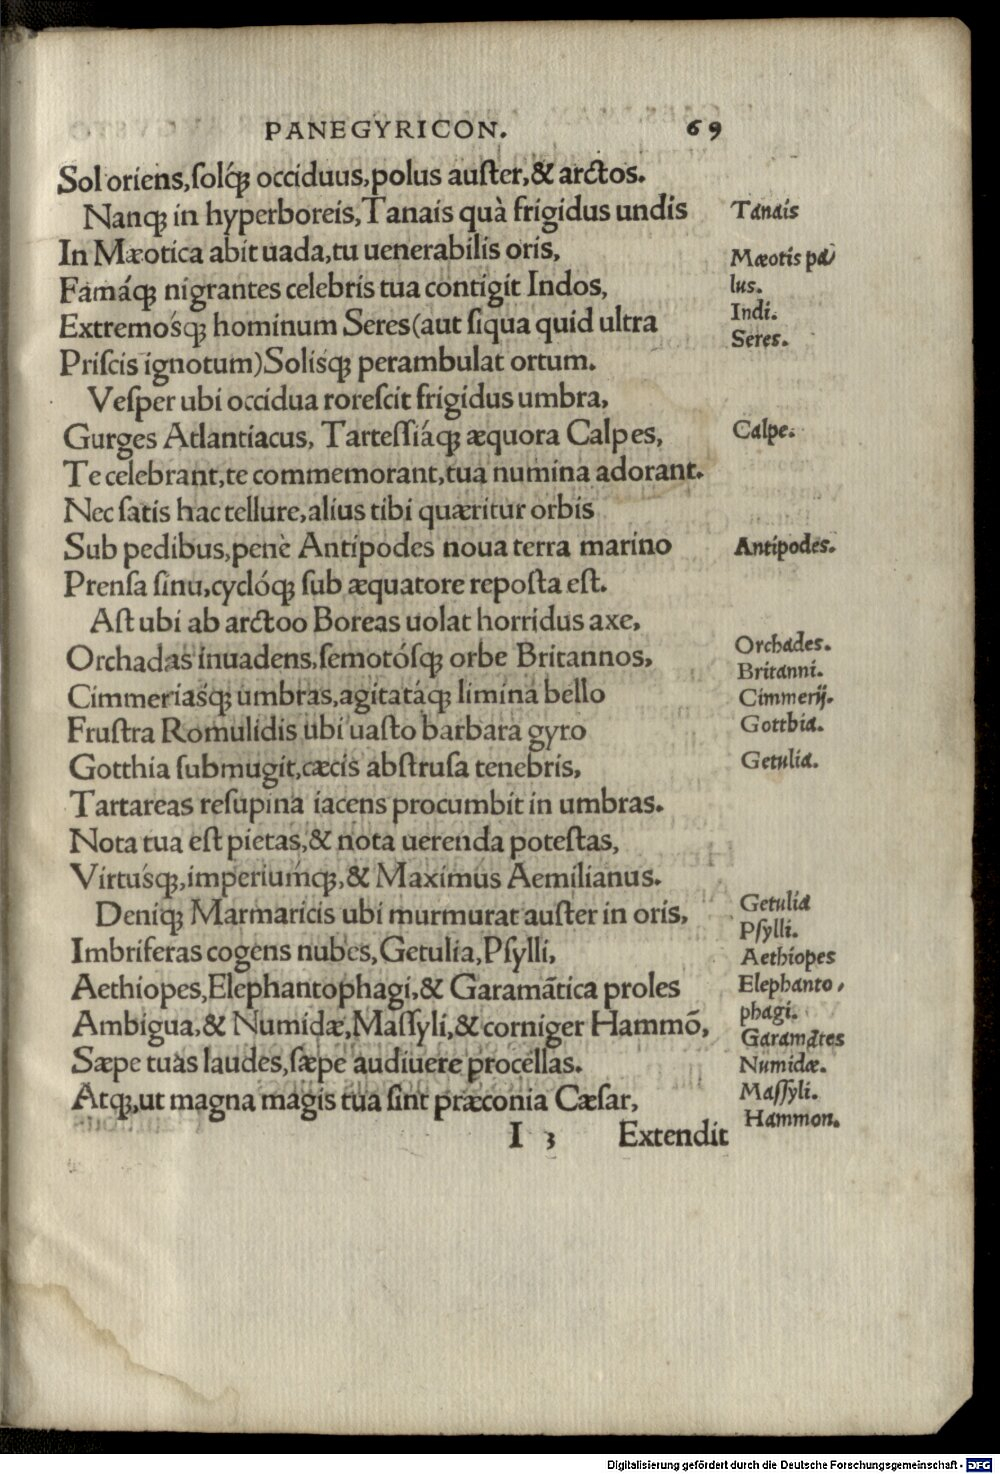 PANEGYRICON. 69
Sol oriens,ſolq́ꝫ occiduus,polus auſter,& arctos.
Nanqꝫ in hyperboreis,Tanais quà frigidus undis Tanais
In Mæotica abit uada,tu uenerabilis oris, Mæotis pa/
Famáqꝫ nigrantes celebris tua contigit Indos, lus.
Extremośqꝫ hominum Seres(aut ſiqua quid ultra Indi.
Priſcis ignotum)Soliśqꝫ perambulat ortum. Seres.
Veſper ubi occidua roreſcit frigidus umbra,
Gurges Atlantiacus, Tarteſſiáqꝫ æquora Calpes, Calpe.
Te celebrant,te commemorant,tua numina adorant.
Nec ſatis hac tellure,alius tibi quæritur orbis
Sub pedibus,penè Antipodes noua terra marino Antipodes.
Prenſa ſinu,cyclóqꝫ ſub æquatore repoſta eſt.
Aſt ubi ab arctoo Boreas uolat horridus axe,
Orchadas inuadens,ſemotóſqꝫ orbe Britannos, Orchades.
Cimmeriaśqꝫ umbras,agitatáqꝫ limina bello Britanni.
Fruſtra Romulidis ubi uaſto barbara gyro Cimmerij.
Gotthia ſubmugit,cæcis abſtruſa tenebris, Gotthia.
Tartareas reſupina iacens procumbit in umbras. Getulia.
Nota tua eſt pietas,& nota uerenda poteſtas,
Virtuśqꝫ,imperiuḿqꝫ,& Maximus Aemilianus.
Deniqꝫ Marmaricis ubi murmurat auſter in oris, Getulia
Imbriferas cogens nubes,Getulia,Pſylli, Pſylli.
Aethiopes,Elephantophagi,& Garamãtica proles Aethiopes
Ambigua,& Numidæ,Maſſyli,& corniger Hammõ, Elephanto/
Sæpe tuas laudes,ſæpe audiuere procellas. phagi.
Atqꝫ,ut magna magis tua ſint præconia Cæſar, Garamãtes
Numidæ.
Maſſyli.
Hammon.
I 3 Extendit
Digitalisierung gefördert durch die Deutsche Forschungsgemeinschaft - DFG